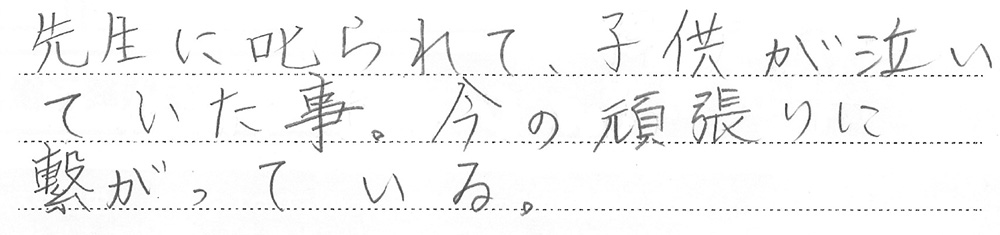 先生に叱られて、子供が泣い
ていた事。今の頑張りに
繋がっている。